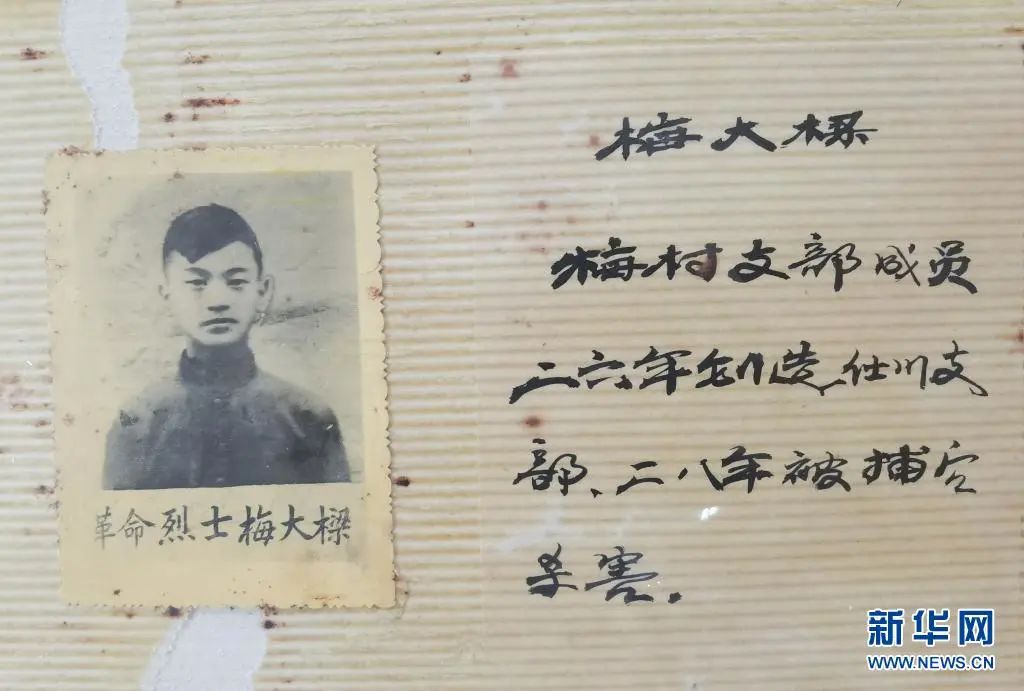 革命烈士梅大樑
梅大樑
梅村支部成员
二六年创造仕川支
部、二八年被捕
杀害.
新华网
WWW.NEWS.CN